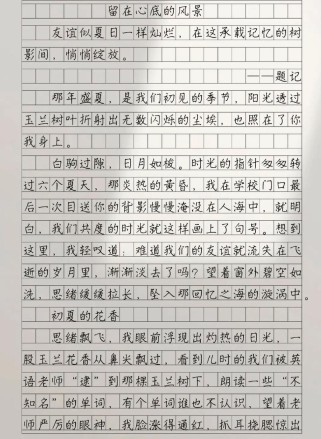 留在心底的风景
友谊似夏日一样灿烂，在这承载记忆的树
影间，悄悄绽放。
——题记
那年盛夏，是我们初见的季节，阳光透过
玉兰树叶折射出无数闪烁的尘埃，也照在了你
我身上。
白驹过隙，日月如梭。时光的指针匆匆转
过六个夏天，那炎热的黄昏，我在学校门口最
后一次目送你的背影慢慢淹没在人海中，就明
白，我们共度的时光就这样画上了句号。想到
这里，我轻叹道：难道我们的友谊就流失在飞
逝的岁月里，渐渐淡去了吗？望着窗外碧空如
洗，思绪缓缓拉长，坠入那回忆之海的漩涡中。
初夏的花香
思绪飘飞，我眼前浮现出灼热的日光，一
股玉兰花香从鼻尖飘过，看到儿时的我们被英
语老师“逮”到那棵玉兰树下，朗读一些“不
知名”的单词，有个单词谁也不认识，望着老
师严厉的眼神，我脸涨得通红，抓耳挠腮惊出